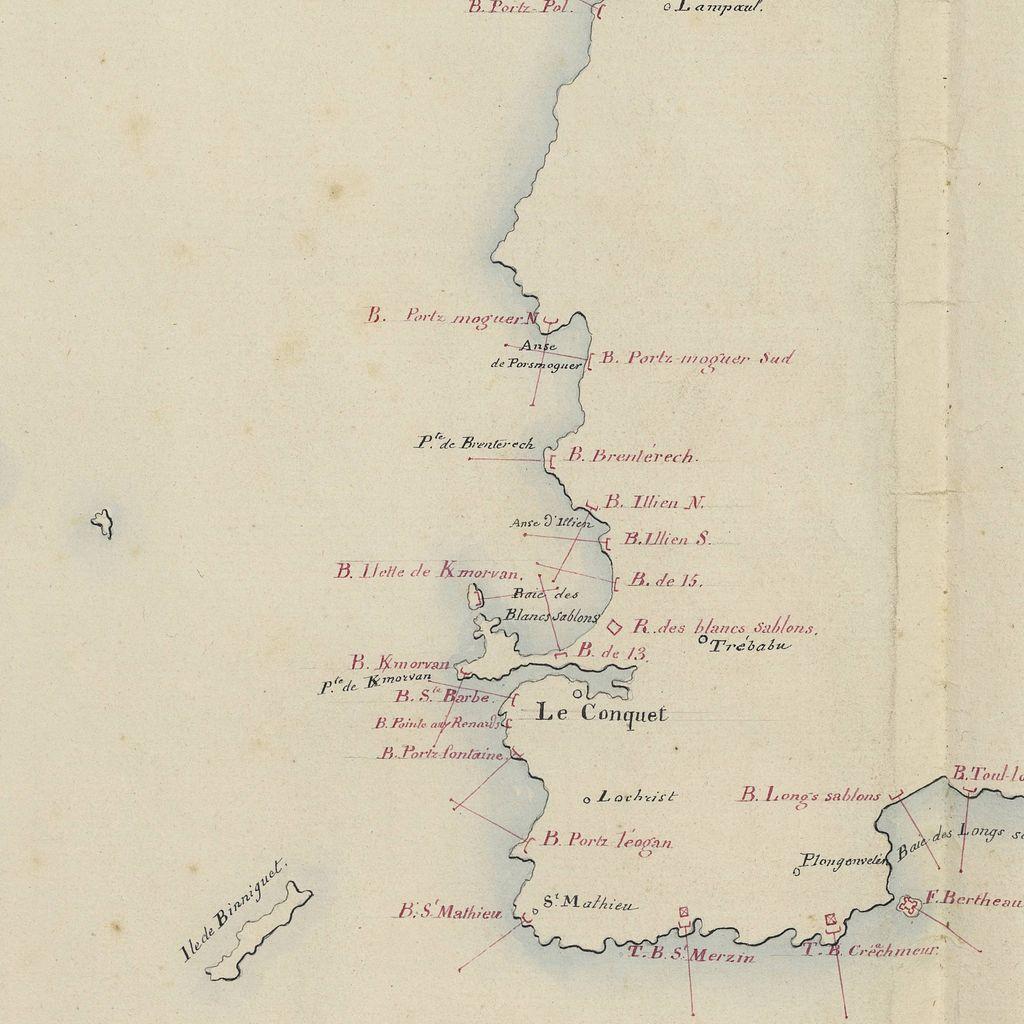 B. Portz-Pol.
Lampaul.
B. Portz moguer N
Anse
de Porsmoguer
B. Portz moguer Sud
P.te de Brenterech
B. Brentérech.
B. Illien N.
Anse d'Illien
B. Illien S.
B. Ilette de Kmorvan.
B. de 15.
Baie des
Blancs sablons
R. des blancs sablons.
Trébabu
B. de 13.
B. Kmorvan
P.te de Kmorvan
B. S.te Barbe.
Le Conquet
B. Pointe aux Renards
B. Portz-fontaine.
B. Toul-lo
Lochrist
B. Longs sablons
Baie des Longs s
B. Portz léogan
Plongonvelin
Ile de Binniguet.
F. Bertheau
B. St Mathieu
St Mathieu
T. B. St Merzin
T. B. Créachmeur.